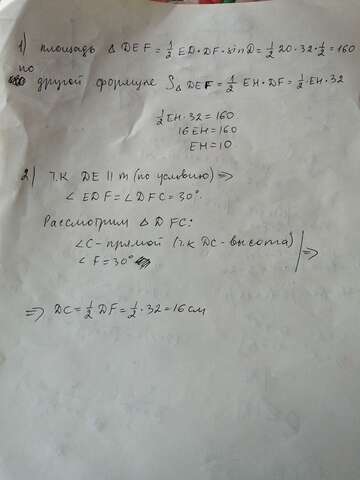 1) площадь △ DEF = 1/2 ED • DF • sinD = 1/2 20 • 32 • 1/2 = 160
по
другой формуле S△DEF = 1/2 EH • DF = 1/2 EH • 32
1/2 EH • 32 = 160
16EH = 160
EH = 10
2) т.к DE || m (по условию) ⇒
∠ EDF = ∠ DFC = 30°.
Рассмотрим △ DFC:
∠C - прямой (т.к DC - высота)
∠ F = 30° ⇒
⇒ DC = 1/2 DF = 1/2 • 32 = 16 см